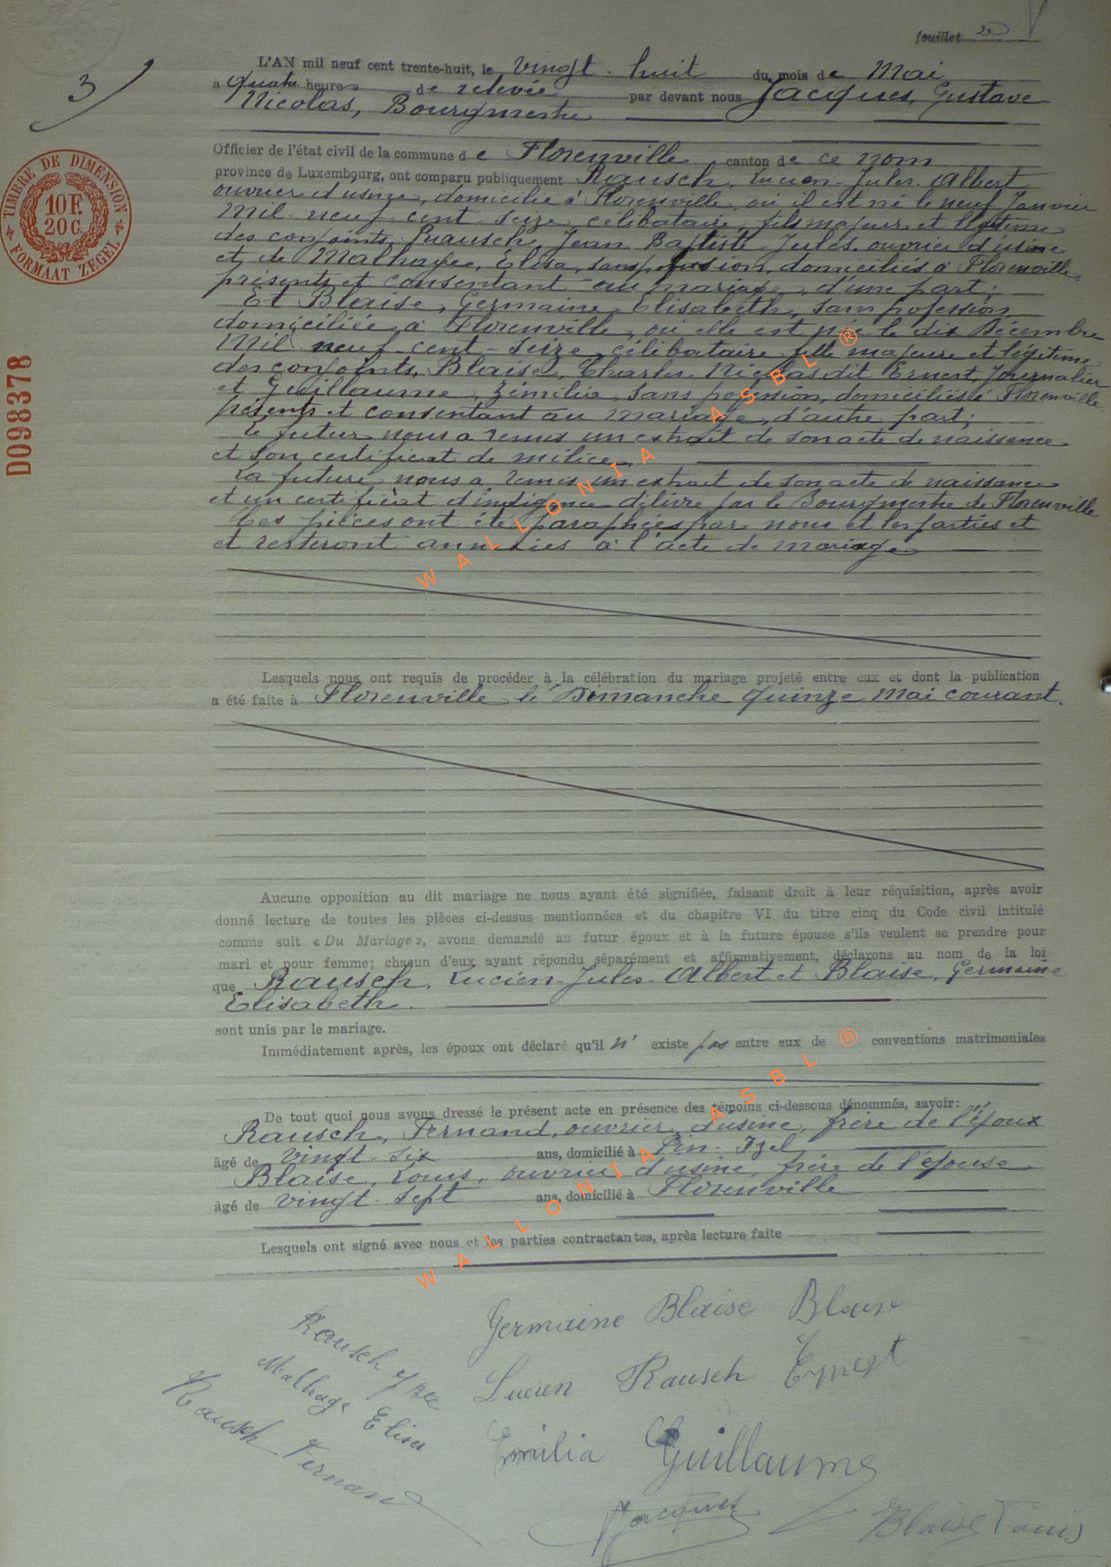 feuillet
3
L'AN mil neuf cent trente-huit, le vingt-huit du mois de Mai
à quatre heures de relevée par devant nous Jacques, Gustave
Nicolas, Bourgmestre
Officier de l'état civil de la commune de Florenville canton de ce nom
province de Luxembourg, ont comparu publiquement Rausch, Lucien-Jules-Albert
ouvrier d'usine, domicilié à Florenville, où il est né le neuf Janvier
Mil neuf cent seize célibataire, fils majeur et légitime
des conjoints, Rausch, Jean Baptiste Jules ouvrier d'usine
et de Malhage, Elisa, sans profession, domiciliés à Florenville,
présents et consentant au mariage, d'une part;
Et Blaise, Germaine Elisabeth, sans profession
domiciliée à Florenville, où elle est née le dix Décembre
Mil neuf cent-seize, célibataire fille majeure et légitime
des conjoints, Blaise, Charles Nicolas dit Ernest, Journalier
et Guillaume, Emilia, sans profession, domiciliés à Florenville,
présents et consentant au mariage, d'autre part;
Le futur nous a remis un extrait de son acte de naissance
et son certificat de milice.
La future nous a remis un extrait de son acte de naissance
et un certificat d'indigence délivré par le Bourgmestre de Florenville
Ces pièces ont été paraphées par nous et les parties et
et resteront annexées à l'acte de mariage
Lesquels nous ont requis de procéder à la célébration du mariage projeté entre eux et dont la publication
a été faite à Florenville le Dimanche quinze Mai courant.
Aucune opposition au dit mariage ne nous ayant été signifiée, faisant droit à leur réquisition, après avoir
donné lecture de toutes les pièces ci-dessus mentionnées et du chapitre VI du titre cinq du Code civil intitulé
comme suit « Du Mariage », avons demandé au futur époux et à la future épouse s'ils veulent se prendre pour
mari et pour femme; chacun d'eux ayant répondu séparément et affirmativement, déclarons au nom de la loi
que Rausch, Lucien-Jules-Albert et Blaise, Germaine
Elisabeth.
sont unis par le mariage.
Immédiatement après, les époux ont déclaré qu'il n'existe pas entre eux de conventions matrimoniales
De tout quoi nous avons dressé le présent acte en présence des témoins ci-dessous dénommés, savoir:
Rausch, Fernand, ouvrier d'usine, frère de l'époux
âgé de vingt-six ans, domicilié à Pin-Izel
Blaise, Louis, ouvrier d'usine, frère de l'épouse
âgé de vingt-sept ans, domicilié à Florenville
Lesquels ont signé avec nous et les parties contractantes, après lecture faite
Germaine Blaise Blaise
Lucien Rausch Ernest
Emilia Guillaume
Rausch
Malhage Elisa
Rausch Fernand
Jacques
Blaise Louis
TIMBRE DE DIMENSION
10F.
20C.
FORMAAT ZEGEL
D098378
WALLONIA ASBL ®
WALLONIA ASBL ®